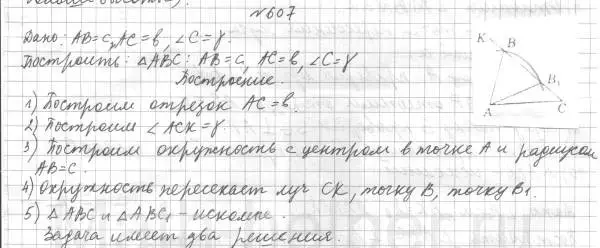 №607
Дано: AB=c, AC=b, ∠C=γ.
Построить: △ABC: AB=c, AC=b, ∠C=γ
Построение.
1) Построим отрезок AC=b.
2) Построим ∠ACK=γ.
3) Построим окружность с центром в точке A и радиусом
AB=C.
4) Окружность пересекает луч CK, точку B, точку B₁.
5) △ABC и △ABC₁ - искомые.
Задача имеет два решения.
K
B
B₁
A
C